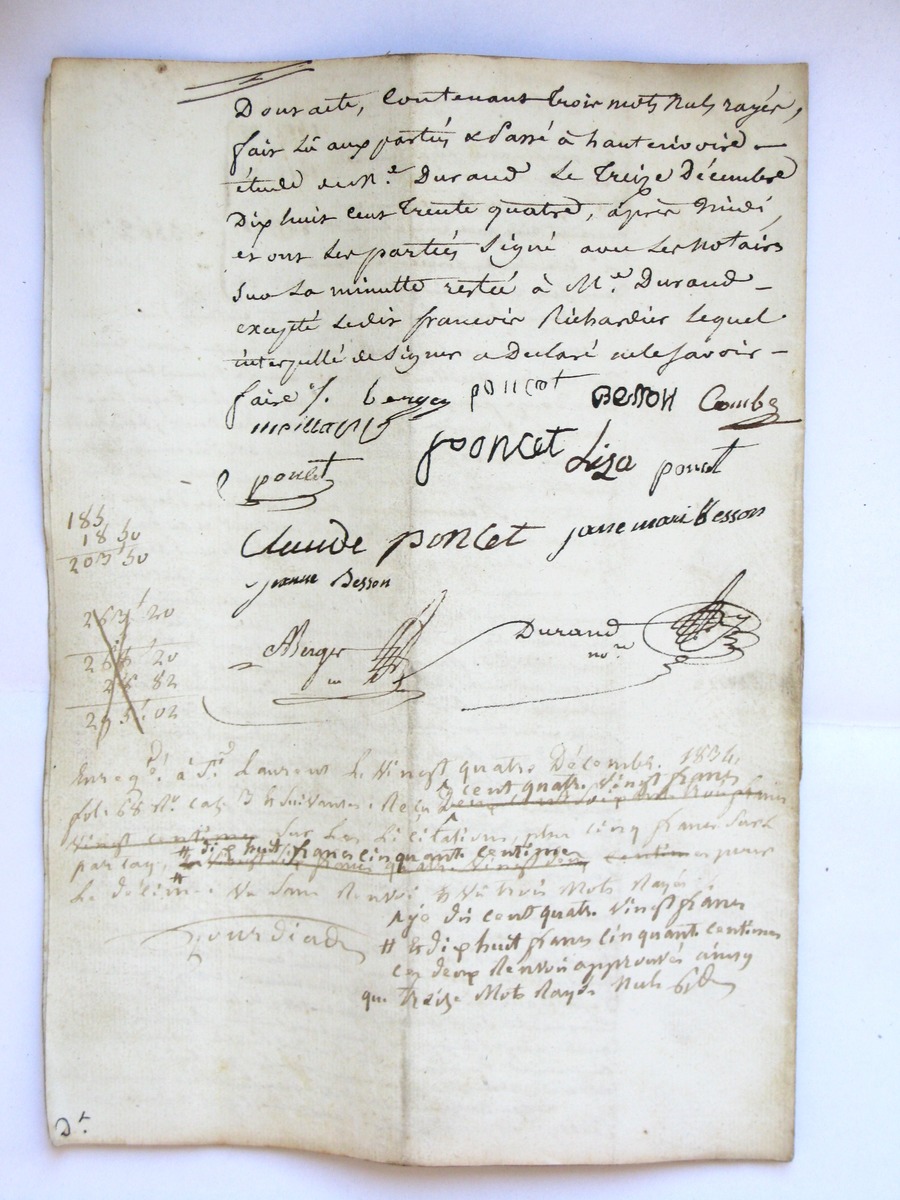 Dont acte, contenant trois mots nuls rayés,
fait lu aux parties & Passé à hauterivoire
étude de Mr. Durand Le Treize Décembre
Dix huit cent trente quatre, après midi,
et ont les parties signé avec les notaires
sur la minutte restée à Me. Durand
excepté ledit francois Richardier lequel
interpellé de signer a Declaré ne le savoir
faire /. berger poncet Besson Combe
poncet poncet Liza poncet
185
18 50
203 50
Claude poncet jane marie Besson
jeanne Besson
263 20
20
26 82
02
Berger Durand
nore
Enregé. à St. Laurent le vingt quatre Décembre 1834,
fol. 68 Ro. cas. 3 & suivantes. Reçu cent quatre vingt francs
vingt centimes sur les licitations, plus cinq francs sur le
partage, # dix huit francs cinquante centimes pour
Le décime. trois mots Rayés
je dis cent quatre vingt francs
# & dix huit francs cinquante centimes
ces deux Renvois approuvés ainsi
que treize mots Rayés Nuls
Dt.